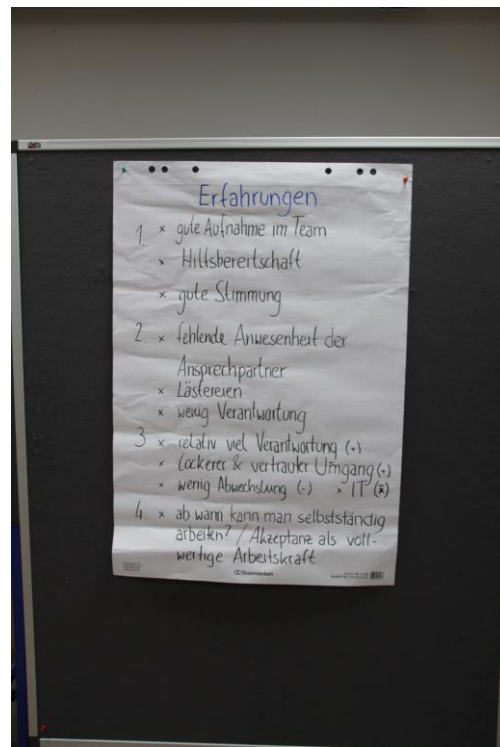 Erfahrungen
1. x gute Aufnahme im Team
x Hilfsbereitschaft
x gute Stimmung
2 x fehlende Anwesenheit der
Ansprechpartner
x Lästereien
x wenig Verantwortung
3 x relativ viel Verantwortung (+)
x lockerer & vertrauter Umgang (+)
x wenig Abwechslung (-) x IT
4. x ab wann kann man selbstständig
arbeiten? / Akzeptanz als voll-
wertige Arbeitskraft
Soennecken